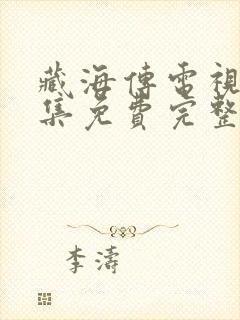 藏海傳電視
集免費完整
李濤